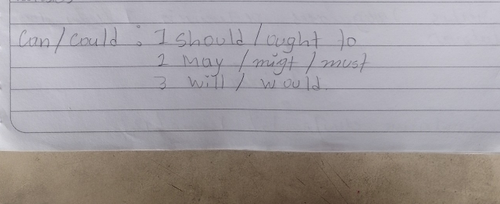 Can/could : 1 should/ought to
2 may/migt/must
3 will/would.